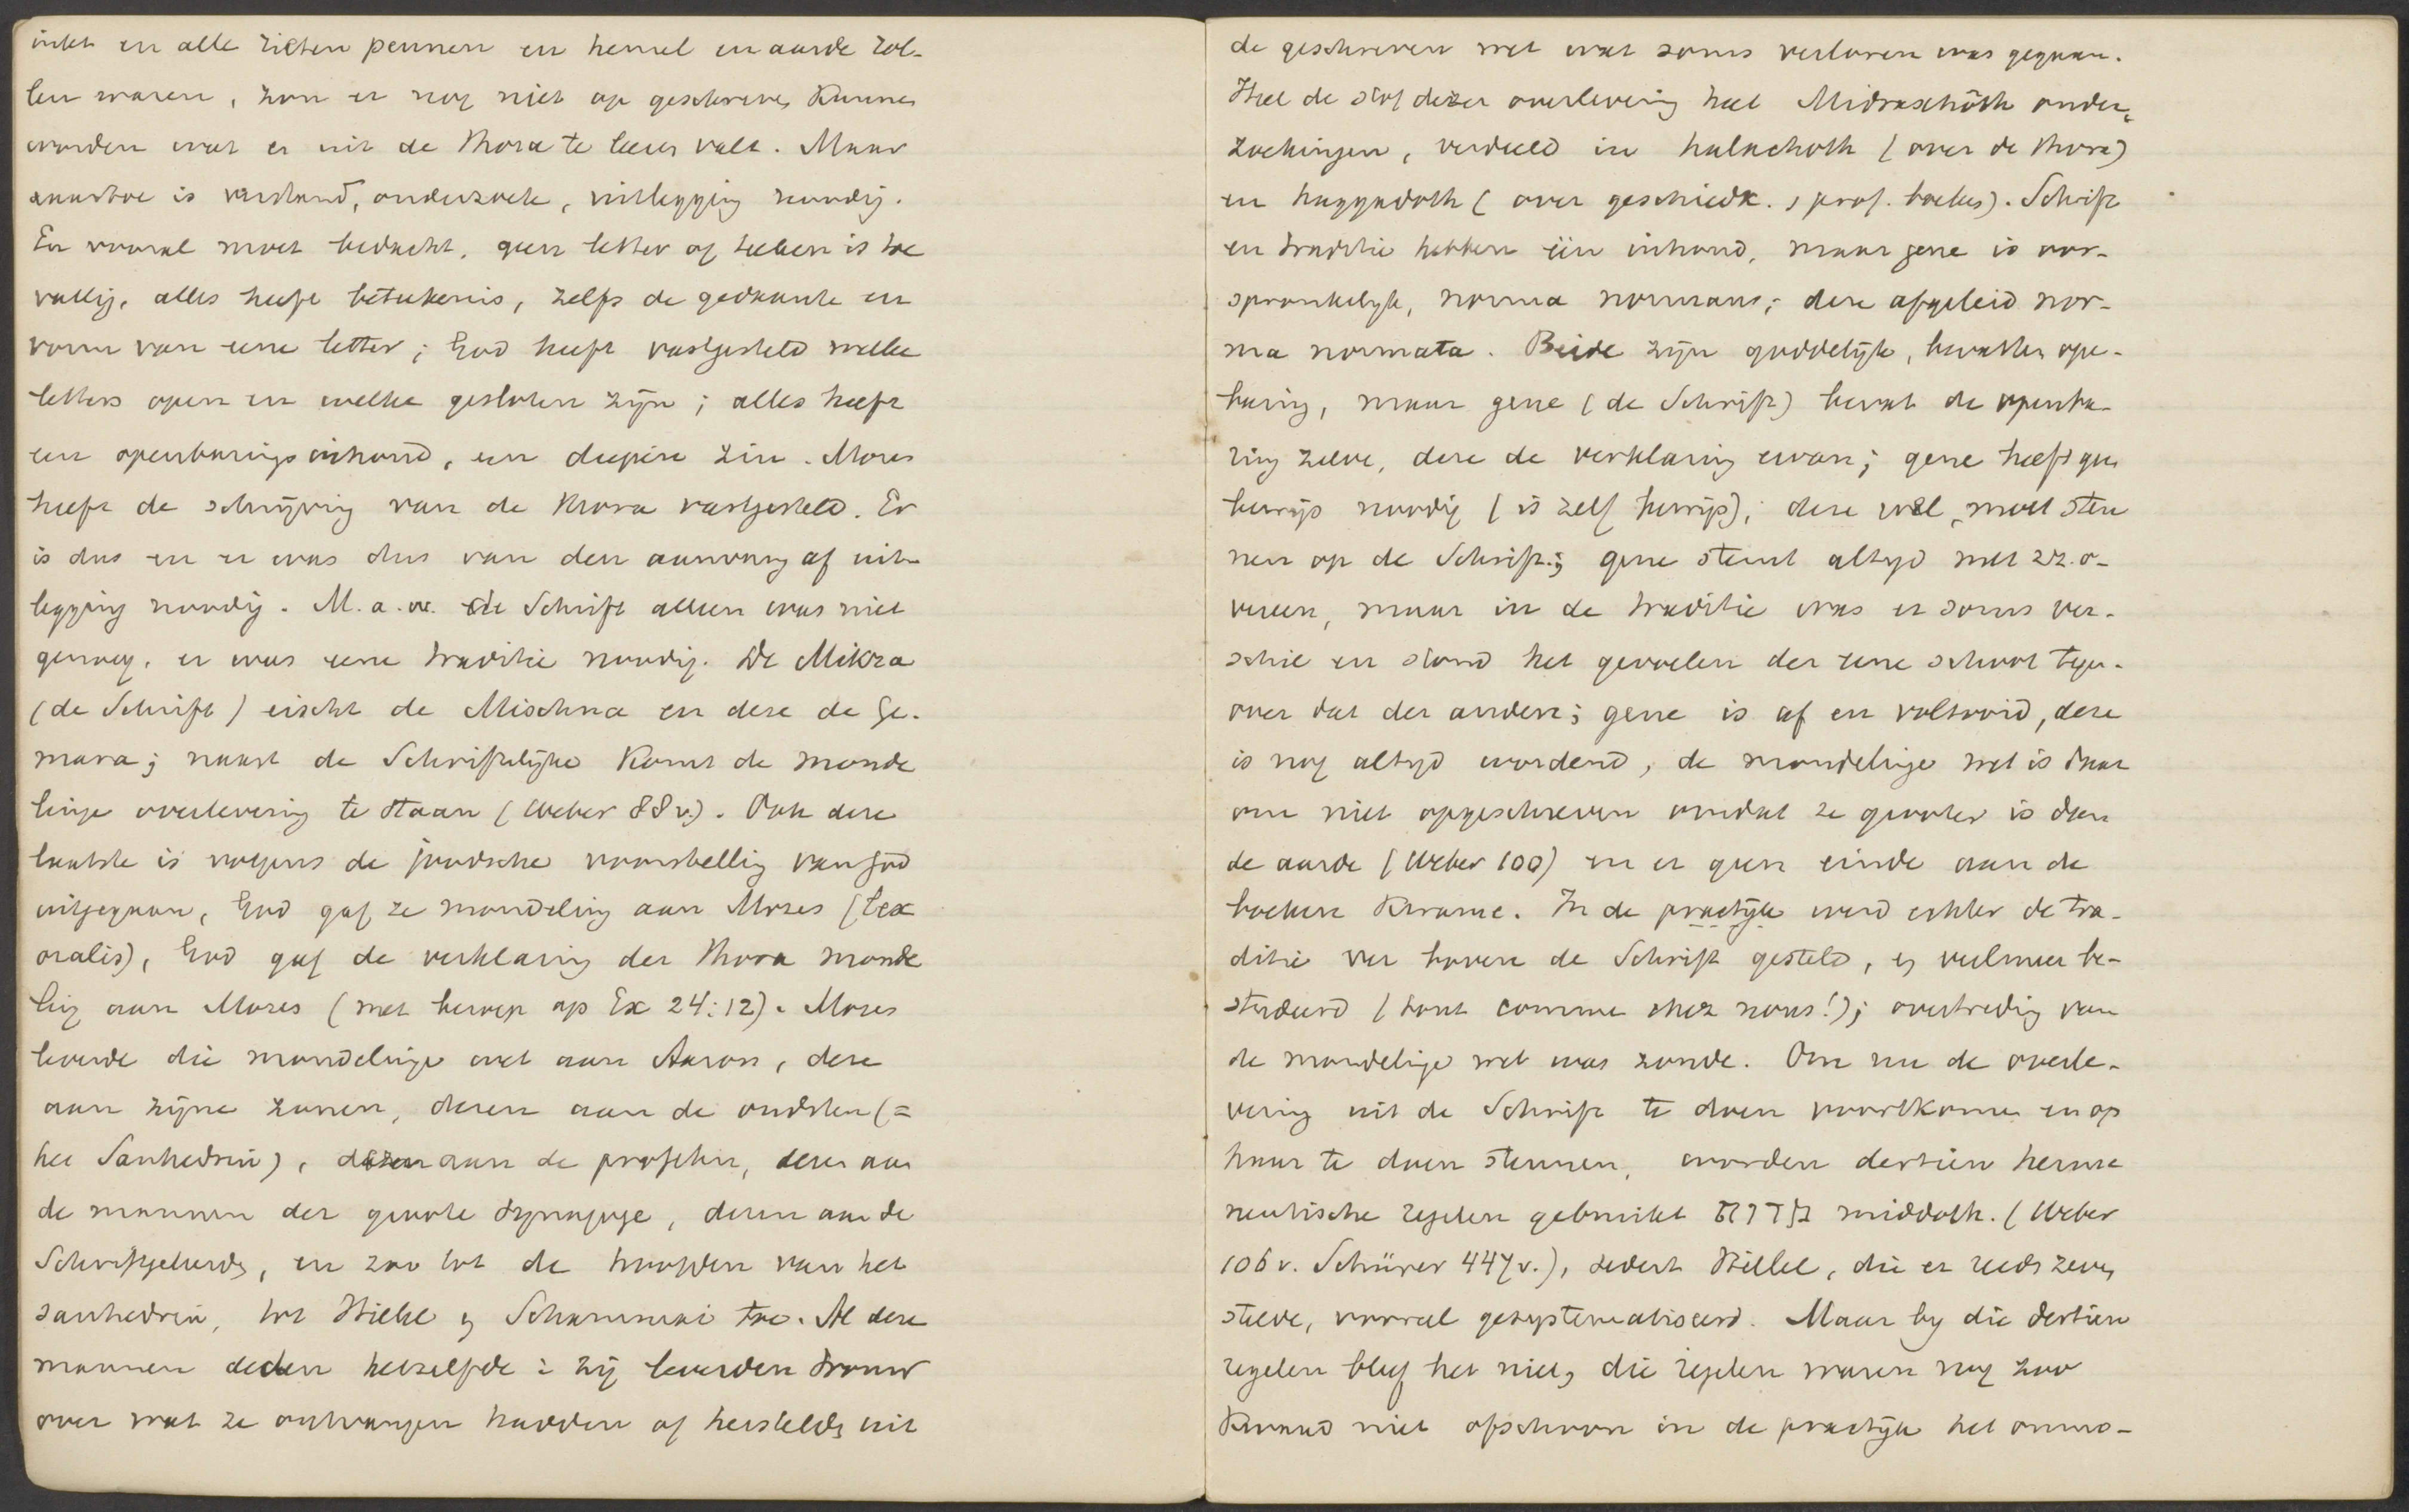 inkt en alle zieten pennen en hemel en aarde rol-
len waren, zou er nog niet op geschreven kunnen
worden wat er uit de Thora te leeren valt. Maar
daartoe is verstand, onderzoek, uitlegging noodig.
En vooral moet bedacht, geen letter of teeken is toe
vallig, alles heeft beteekenis, zelfs de gedaante en
vorm van eene letter; God heeft vastgesteld welke
letters open en welke gesloten zijn; alles heeft
een openbaringsinhoud, een diepere zin. Mozes
heeft de schrijving van de Thora vastgesteld. Er
is dus en er was dus van den aanvang af uit-
legging noodig. M.a.w. de Schrift alleen was niet
genoeg, er was eene traditie noodig. De Mikra
(de Schrift) eischt de Mischna en deze de Ge-
mara; naast de Schriftelijke komt de monde
linge overlevering te staan (Weber 88v.). Ook deze
laatste is volgens de joodsche voorstelling van God
uitgegaan, God gaf ze mondeling aan Mozes (lex
oralis), God gaf de verklaring der Thora monde
ling aan Mozes (met beroep op Ex 24:12). Mozes
leverde die mondelinge wet aan Aaron, deze
aan zijne zonen, dezen aan de oudsten (=
het Sanhedrin), dezen aan de profeten, dezen aan
de mannen der groote Synagoge, dezen aan de
Schriftgeleerden, en zoo tot de hoofden van het
sanhedrin, tot Hillel en Schammai toe. Al deze
mannen deden hetzelfde: zij leverden trouw
over wat ze ontvangen hadden of herstelden uit
de geschreven wet wat soms verloren was gegaan.
Heel de stof dezer overlevering heet Midraschôth onder-
zoekingen, verdeeld in halachoth (over de Thora)
en haggadoth (over geschiedk., prof. boeken). Schrift
en traditie hebben één inhoud, maar gene is oor-
spronkelijk, norma normans; deze afgeleid nor-
ma normata. Beide zijn goddelijk, bevatten ope-
baring, maar gene (de Schrift) bevat de openba-
ring zelve, deze de verklaring ervan; gene heeft geen
bewijs noodig (is zelf bewijs); deze wel, moet steu
nen op de Schrift; gene stemt altijd met zz. o-
vereen, maar in de traditie was er soms ver-
schil en stond het gevoelen der eene school tegen-
over dat der andere; gene is af en voltooid, deze
is nog altijd wordend, de mondelinge wet is daar
om niet opgeschreven omdat ze grooter is dan
de aarde (Weber 100) en er geen einde aan de
boeken kwame. In de practijk werd echter de tra-
ditie ver boven de Schrift gesteld, en veelmeer be-
studeerd (tout comme chez nous!); overtreding van
de mondelinge wet was zonde. Om nu de overle-
vering uit de Schrift te doen voortkomen en op
haar te doen steunen, worden dertien herme
neutische regelen gebruikt מִדּוֹת middoth. (Weber
106v. Schürer 447v.), sedert Hillel, die er reeds zeven
stelde, vooral gesystematiseerd. Maar by die dertien
regelen bleef het niet, die regelen waren nog zoo
kwaad niet ofschoon in de practijk het onmo-